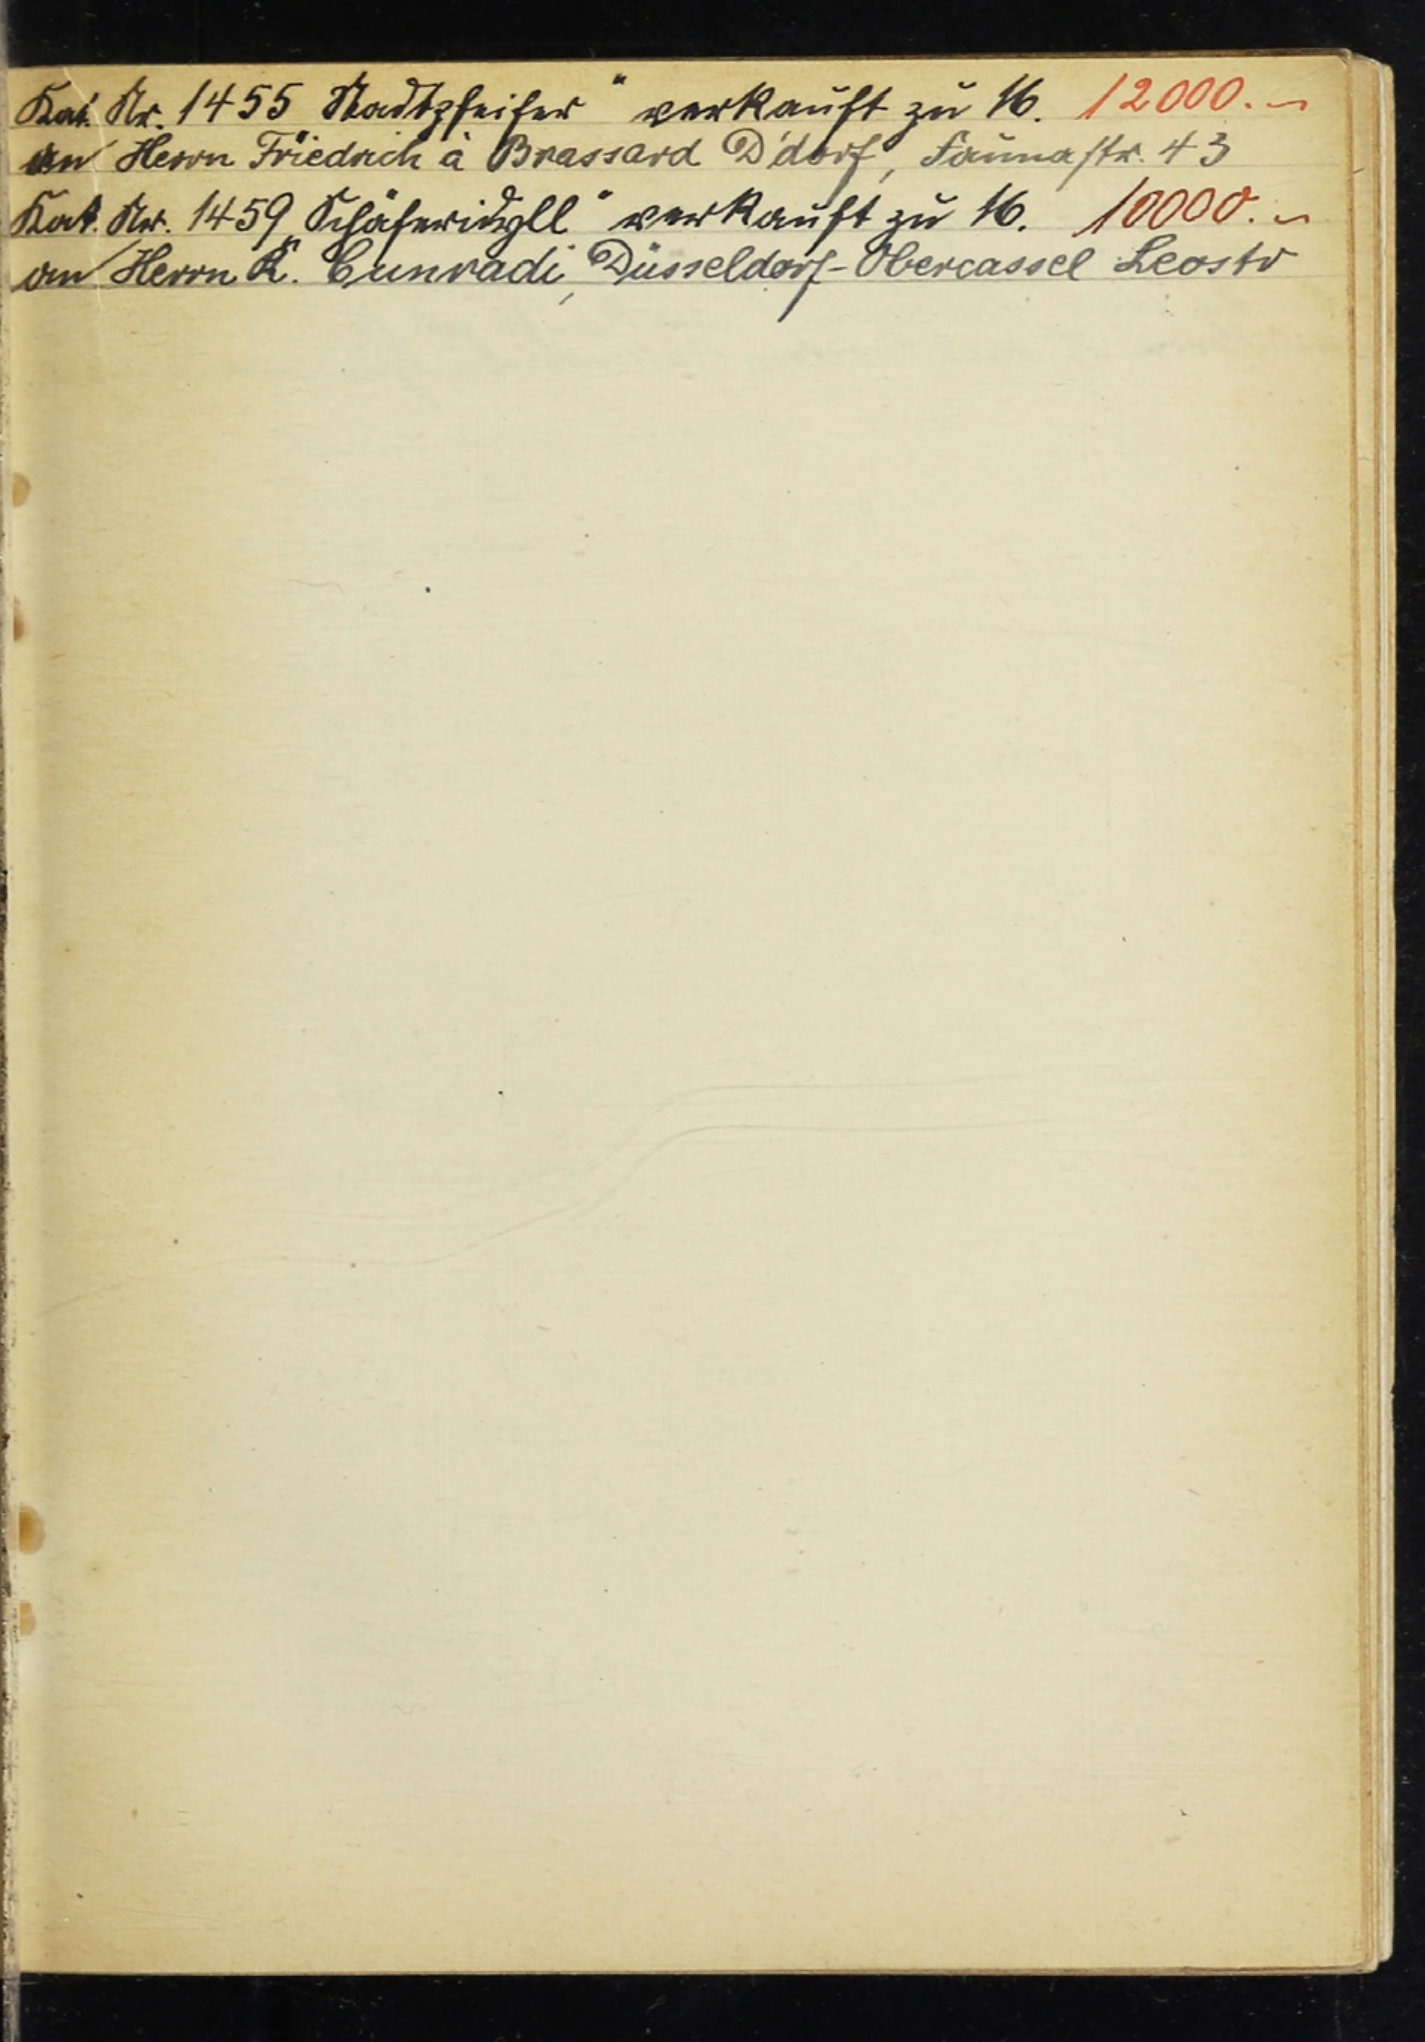 Kat. Nr. 1455 Stadtpfeifer“ verkauft zu M. 12000.–
an Herrn Friedrich à Brassard D'dorf, Faunastr. 43
Kat. Nr. 1459 „Schäferidyll“ verkauft zu M. 10000.–
an Herrn K. Cunradi, Düsseldorf-Obercassel Leostr